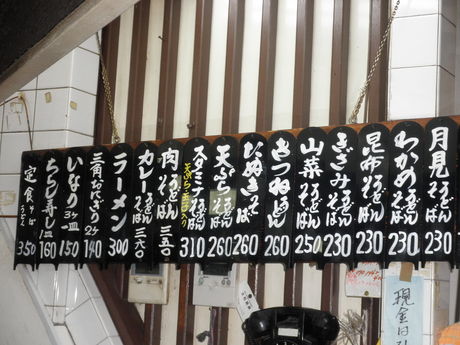 月見うどんそば 230
わかめうどんそば 230
昆布うどんそば 230
きざみうどんそば 230
山菜うどんそば 250
きつねうどん 260
たぬきそば 260
天ぷらうどんそば 260
スタミナうどんそば 310
天ぷら・玉子入り
肉うどんそば 350
カレーうどんそば 360
ラーメン 300
三角おにぎり 2ケ 140
いなり 3ケ一皿 150
ちらし寿し一皿 160
定食 そばうどん 350
現金は